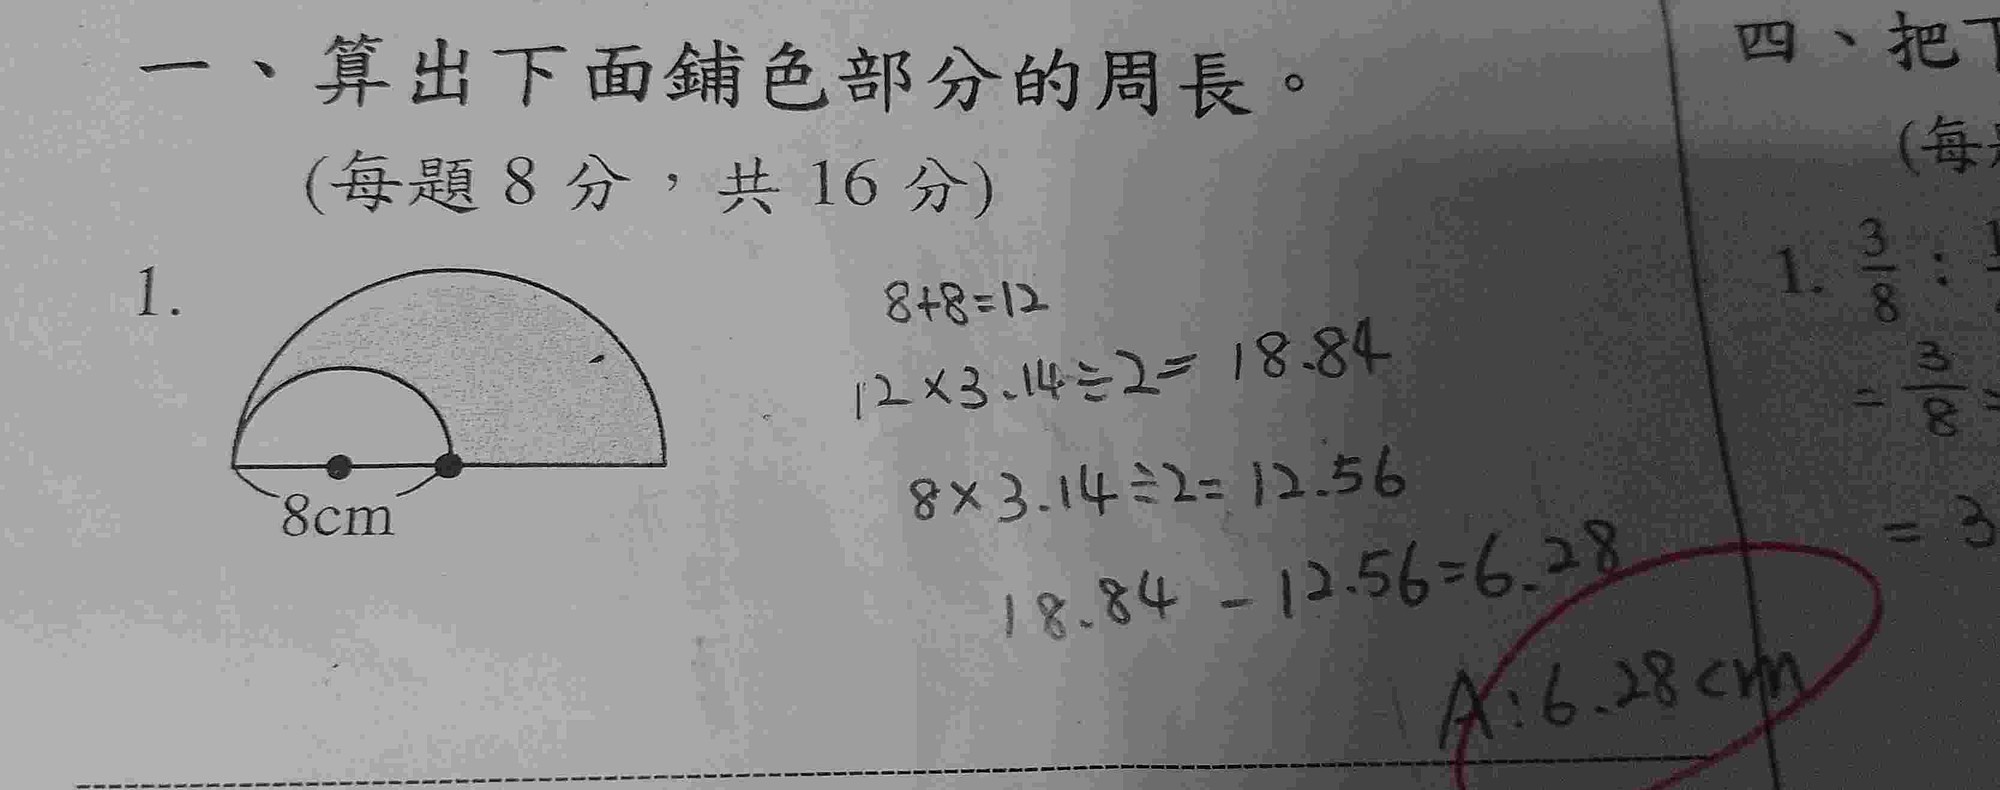 一、算出下面鋪色部分的周長。
(每題 8 分，共 16 分)
1.
8cm
8+8=12
12×3.14÷2=18.84
8×3.14÷2=12.56
18.84-12.56=6.28
A:6.28cm
四、把
(每
1. 3/8 :
= 3/8
= 3